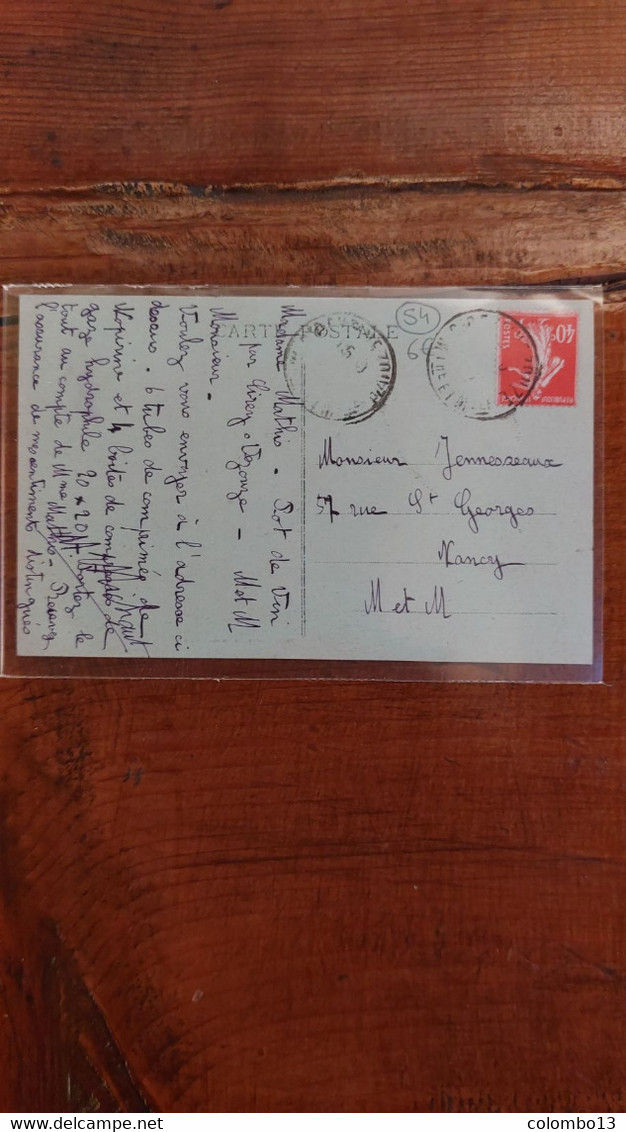 CARTE POSTALE
54
Madame Mathis. Pot de Vin
par Cirey. Vezouze - M et M
Monsieur.
Voulez vous envoyer à l'adresse ci
dessus. 6 tubes de comprimés de
Képirine et 4 boites de
gaze hydrophile 20 x 20. le
tout au compte de Mme Mathis. Recevez
l'assurance de mes sentiments distingués
Monsieur Jennesseaux
57 rue St Georges
Nancy
M et M
40c
POSTES
colombo13